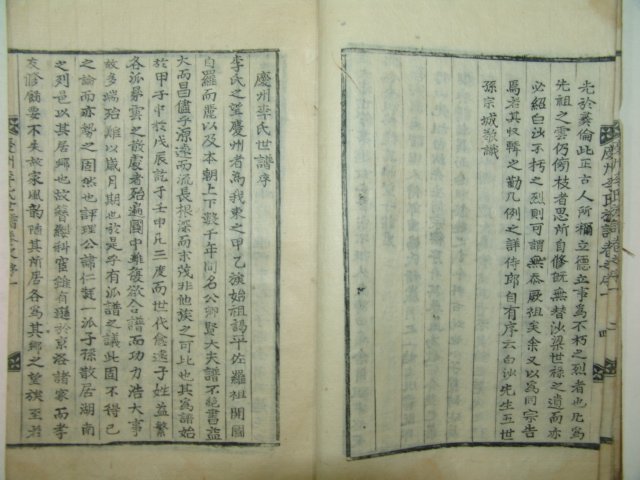 先於彝倫此正古人所稱立德立事爲不朽之烈者也凡爲
先祖之雲仍傍枝者思所自修旣無替沙梁世祿之遺而亦
必紹白沙不朽之烈則可謂無忝厥祖矣余又以爲同宗告
焉若其收輯之勤凡例之詳侍郞自有序云白沙先生五世
孫宗城敬識
慶州李氏世譜序
李氏之望慶州者爲我東之甲乙族始祖謁平佐羅祖開國
自羅而麗以及本朝上下數千年間名公卿賢大夫譜不絶書益
大而昌儘乎源遠而流長根深而末茂非他族之可比也其爲譜始
於甲子中敀戊辰訖于壬申凡三度而世代愈遠子姓益繁
各派景雲之散處者殆遍國中雖復欲合譜而功力浩大事
故多端殆難以歲月期也於是乎有派譜之議此固不得已
之論而亦勢之固然也評理公諱仁挺一派子孫散居湖南
之列邑以其居鄕也故簪纓科宦雖有遜於京洛諸家而孝
友修飭要不失故家風韵隨其所居各爲其鄕之望族至若
慶州李氏世譜卷之序一